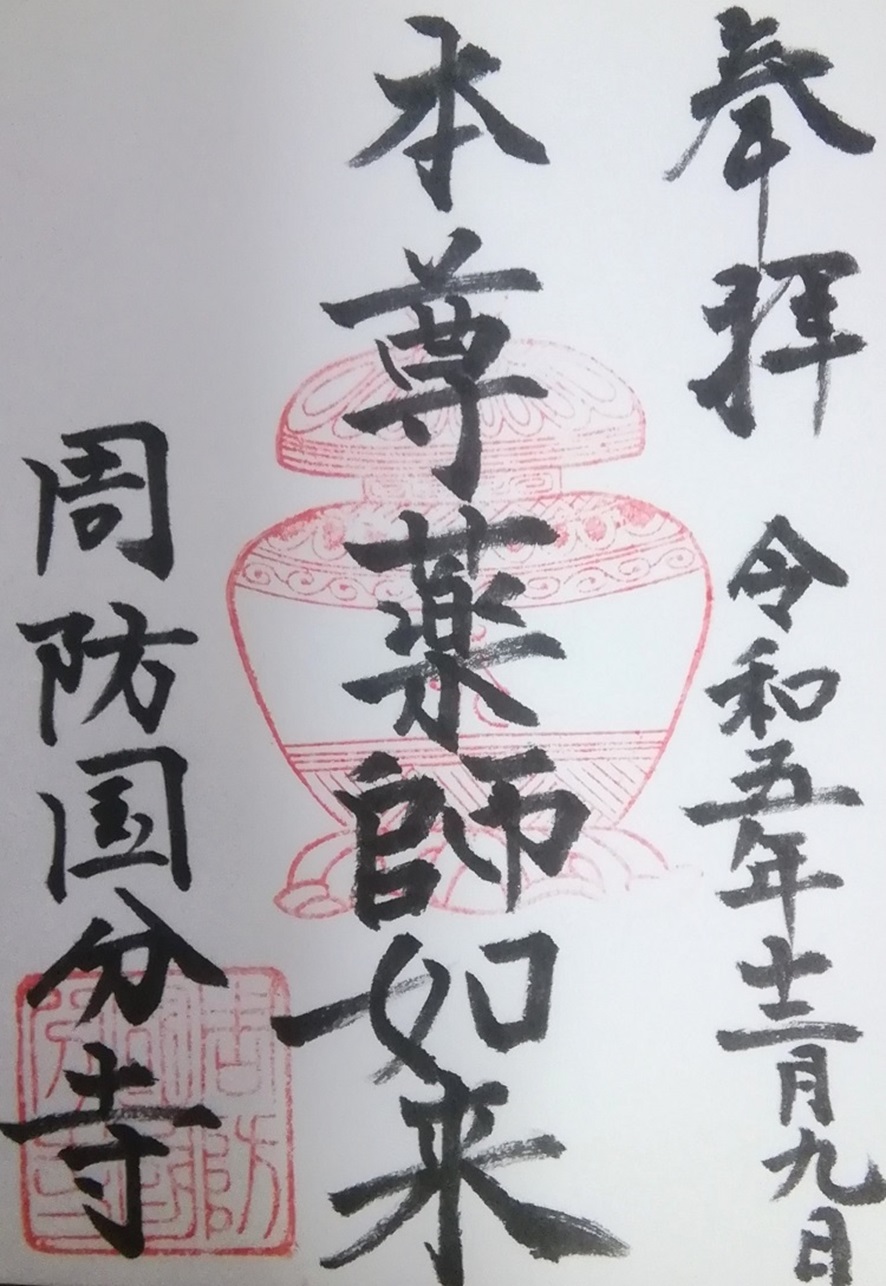 奉拝 令和五年十二月九日
本尊薬師如来
周防国分寺